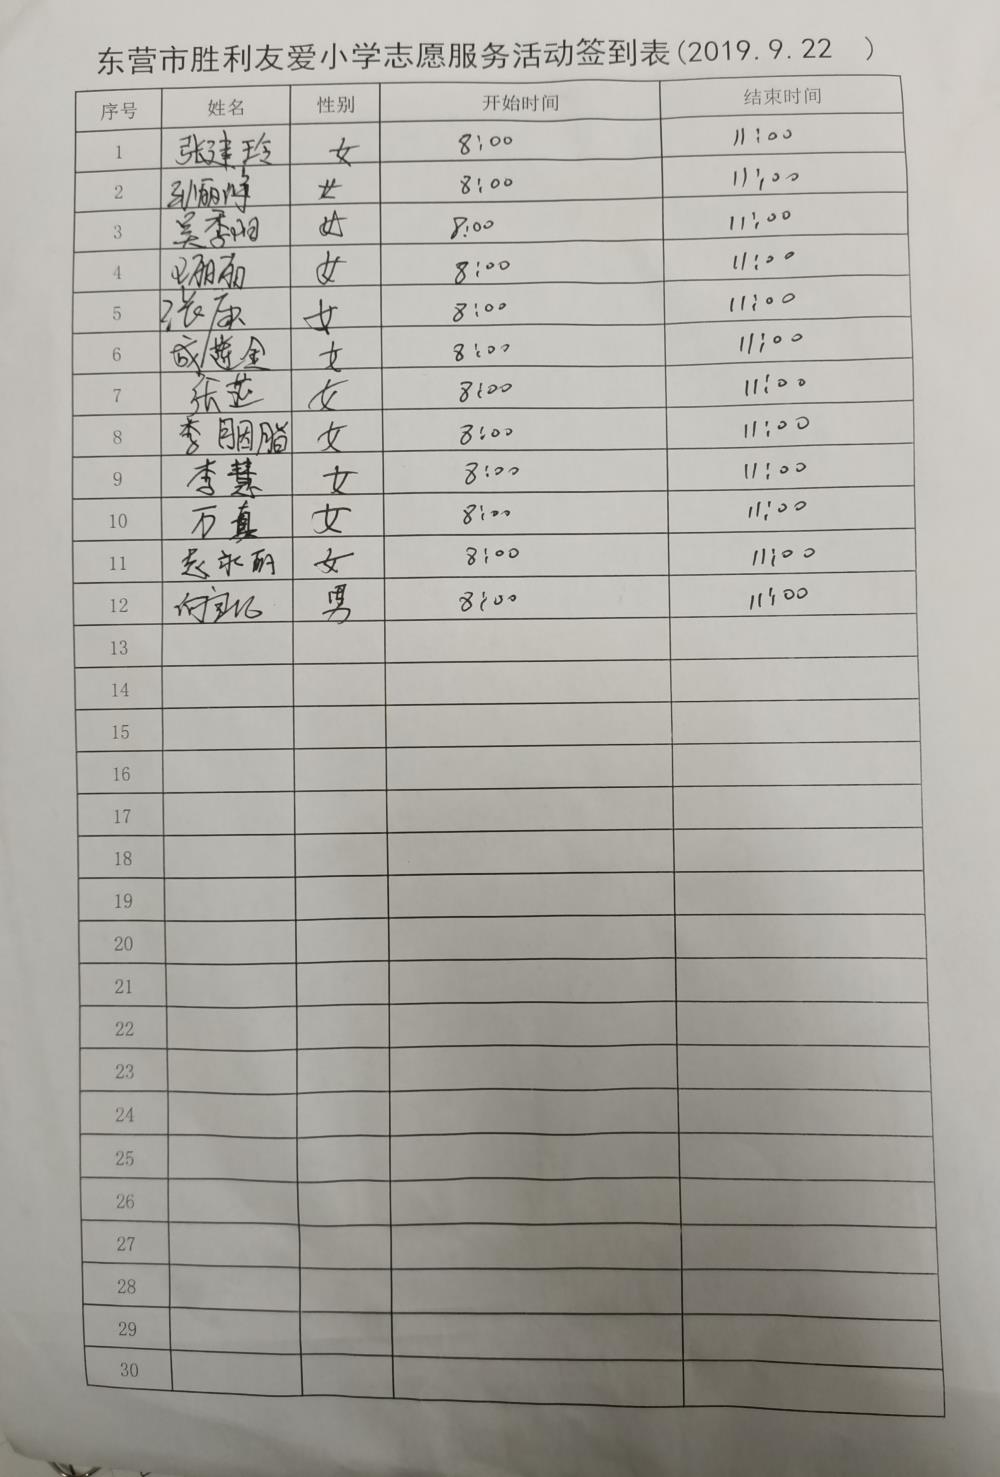 东营市胜利友爱小学志愿服务活动签到表(2019.9.22 )
序号 姓名 性别 开始时间 结束时间
1 张建玲 女 8:00 11:00
2 女 8:00 11:00
3 吴季阳 女 8:00 11:00
4 王丽丽 女 8:00 11:00
5 女 8:00 11:00
6 成莲金 女 8:00 11:00
7 张莲 女 8:00 11:00
8 李胭脂 女 8:00 11:00
9 李慧 女 8:00 11:00
10 万真 女 8:00 11:00
11 女 8:00 11:00
12 男 8:00 11:00
13
14
15
16
17
18
19
20
21
22
23
24
25
26
27
28
29
30